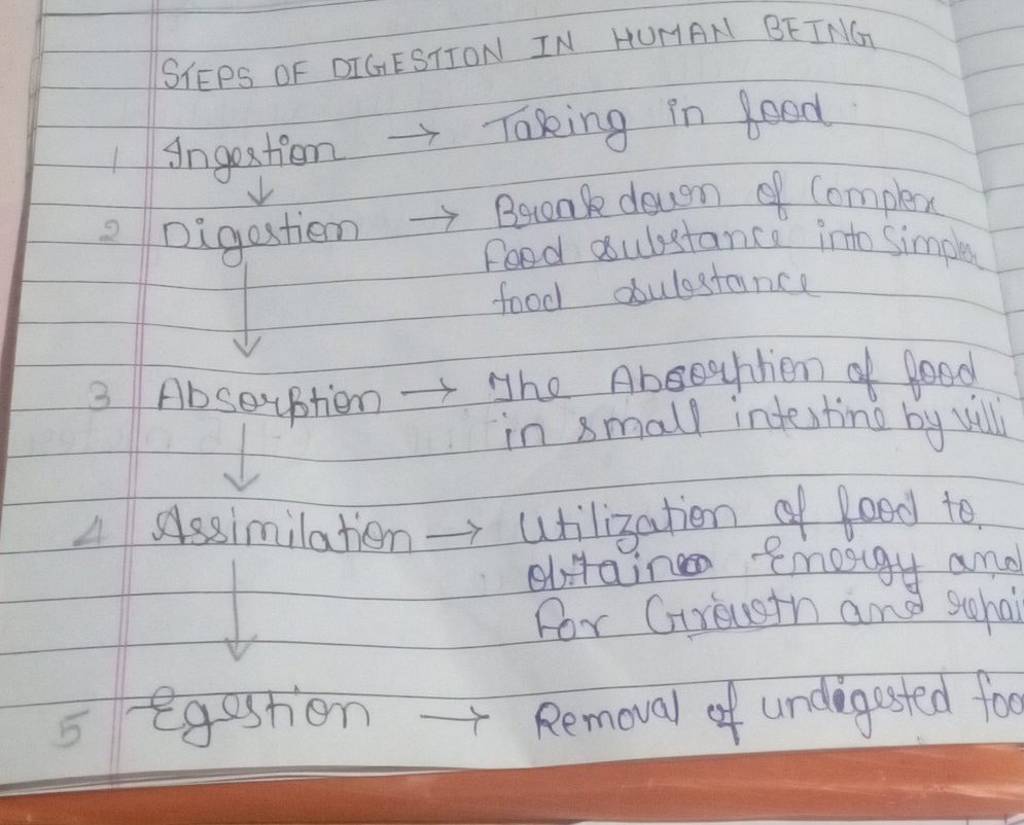 STEPS OF DIGESTION IN HUMAN BEING
1 Ingestion → Taking in food
↓
2 Digestion → Breakdown of Complex
food substance into Simpler
food substance
↓
3 Absorption → The Absorption of food
in small intestine by villi
↓
4 Assimilation → Utilization of food to
obtain Energy and
For Growth and repai
↓
5 Egestion → Removal of undigested foo